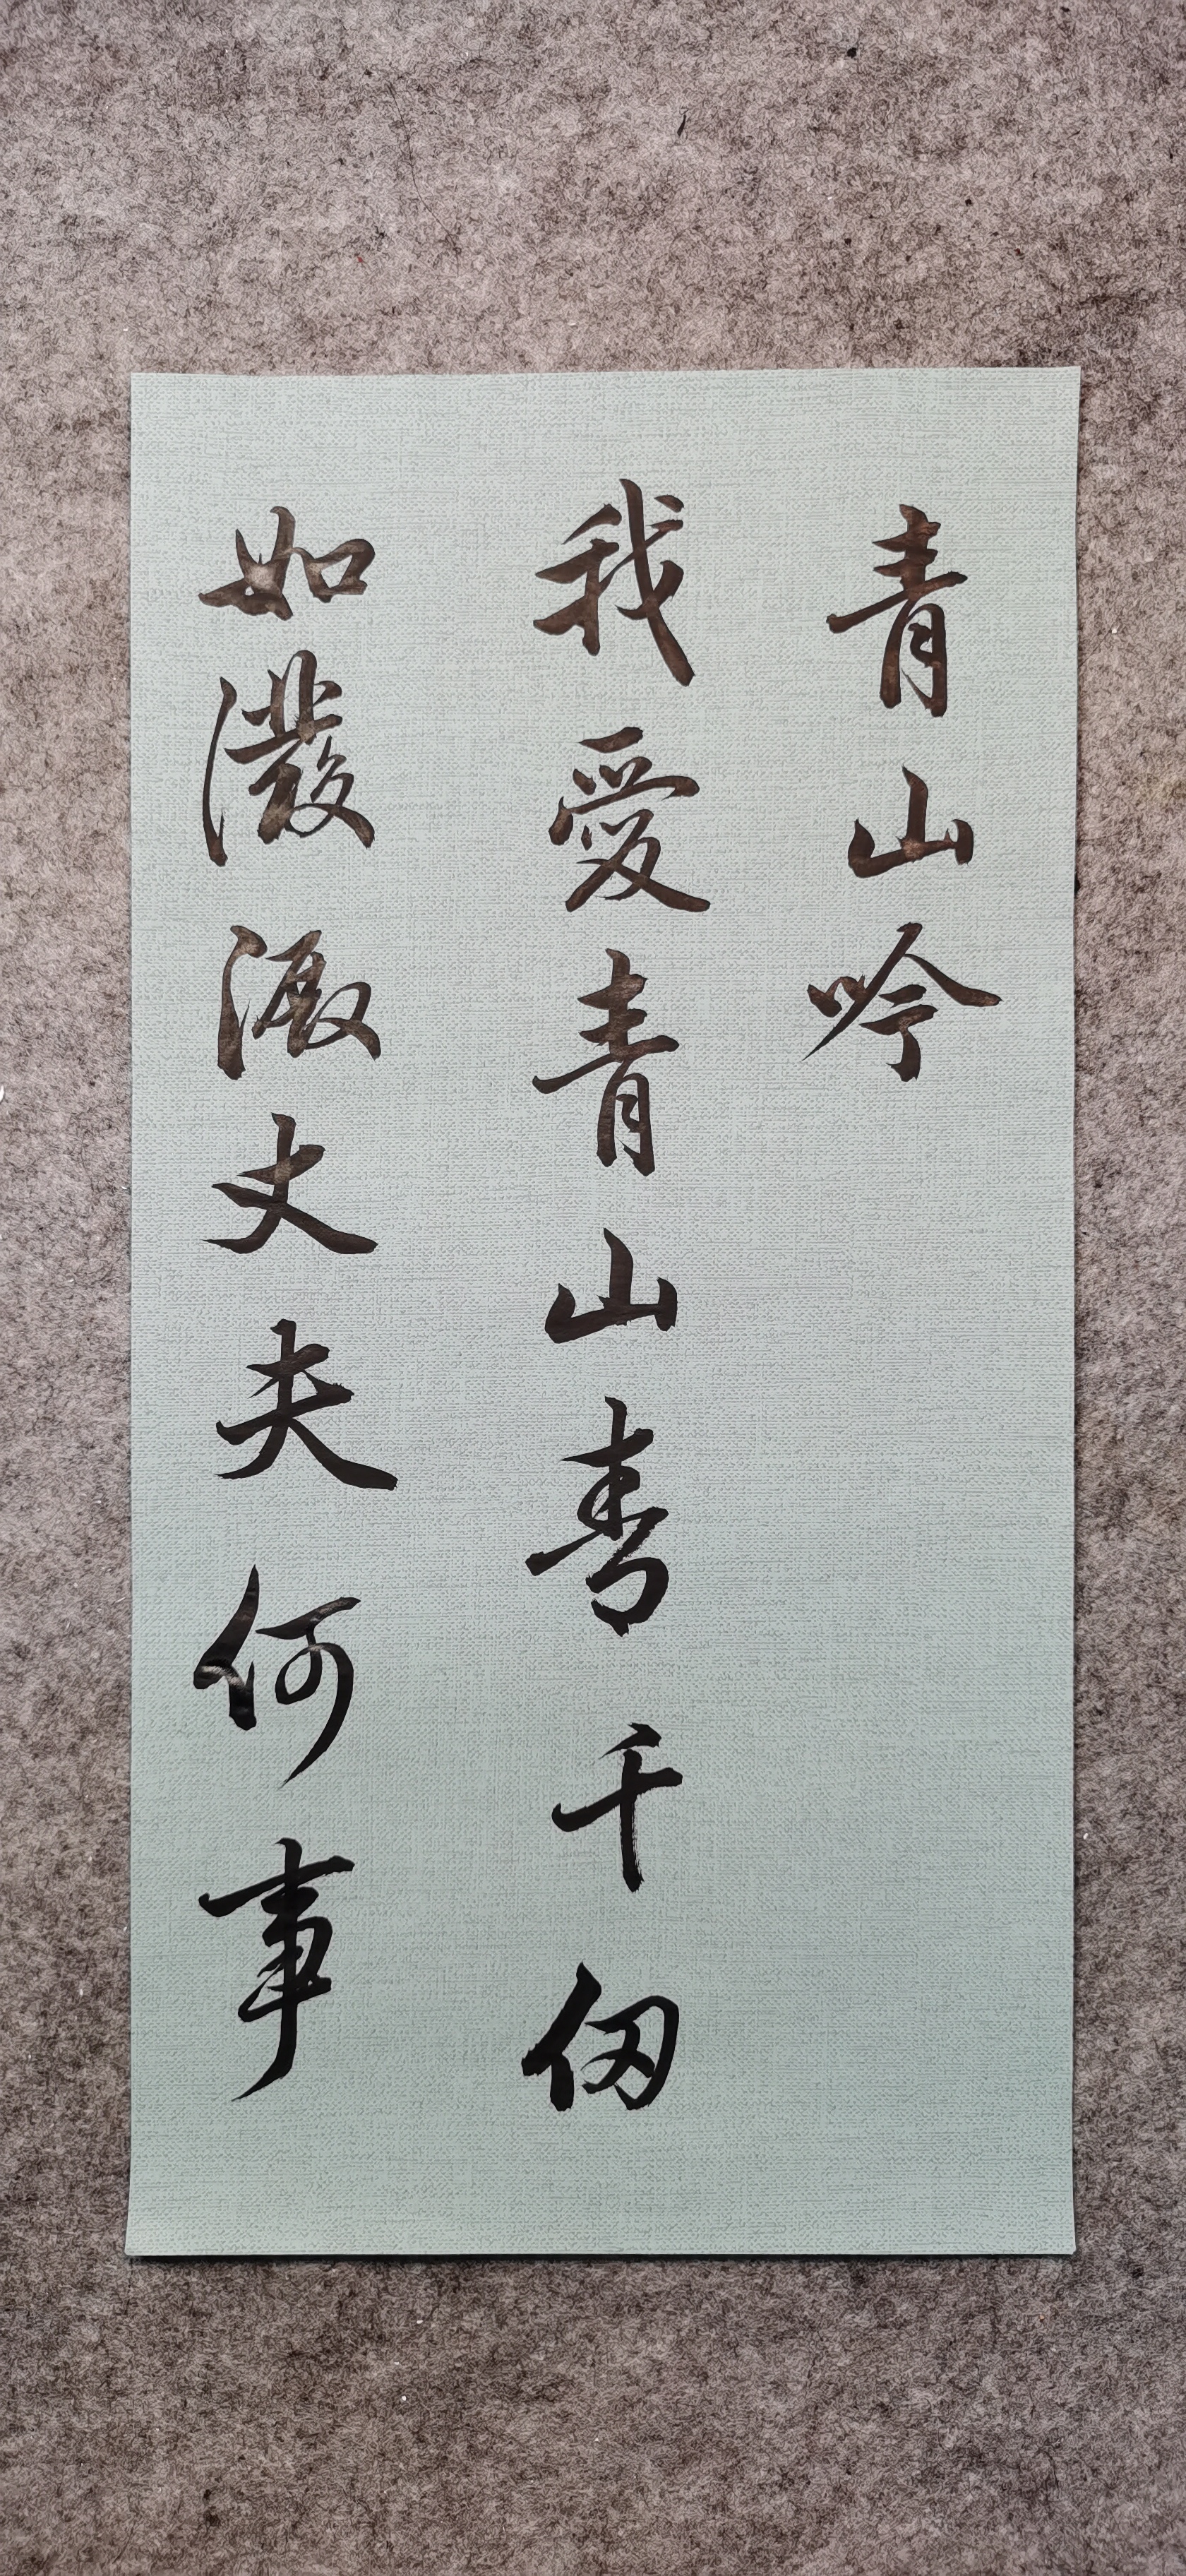 青山吟
我愛青山青千仞
如潑溉丈夫何事